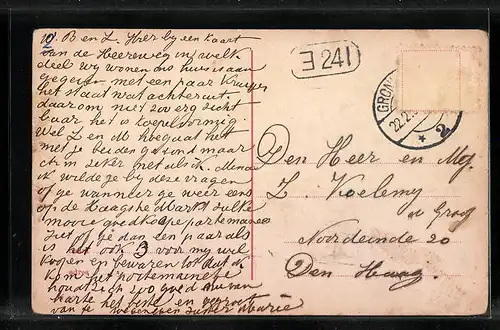 W. B en Z. Hier by een kaart
van de Heereweg in welk
deel wy wonen ons huis is aan
gegeven met een paar Kruisjes
het staat wat achteruit.
daarom niet zoo erg zicht
baar het is koepelvormig.
Wel Z en M hoe gaat het
met je beiden gezond maar
ik wilde je by deze vragen
of ge wanneer ge weer eens
op de Haagsche Markt zulke
mooie goedkoope partemonees
ziet of ge dan een paar als
is het ook 3 voor my wil
koopen en bewaren tot dat ik
kom het portemonnete
houdt zich zoo goed nu van
harte het beste en gegroet
van je zuster Marie
E 241
GRON
22.2.
2
Den Heer en Mej.
Z. Koelemy
de Groog
Noordeinde 20
Den Haag